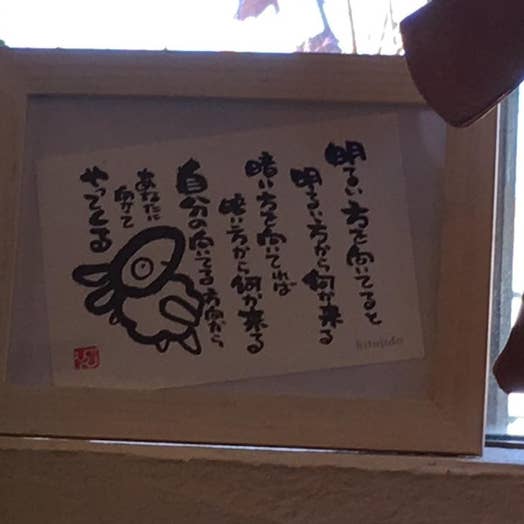 明るい方を向いてると
明るい方から何か来る
暗い方を向いてれば
暗い方から何か来る
自分の向いてる方向から
あなたに
向けて
やってくる